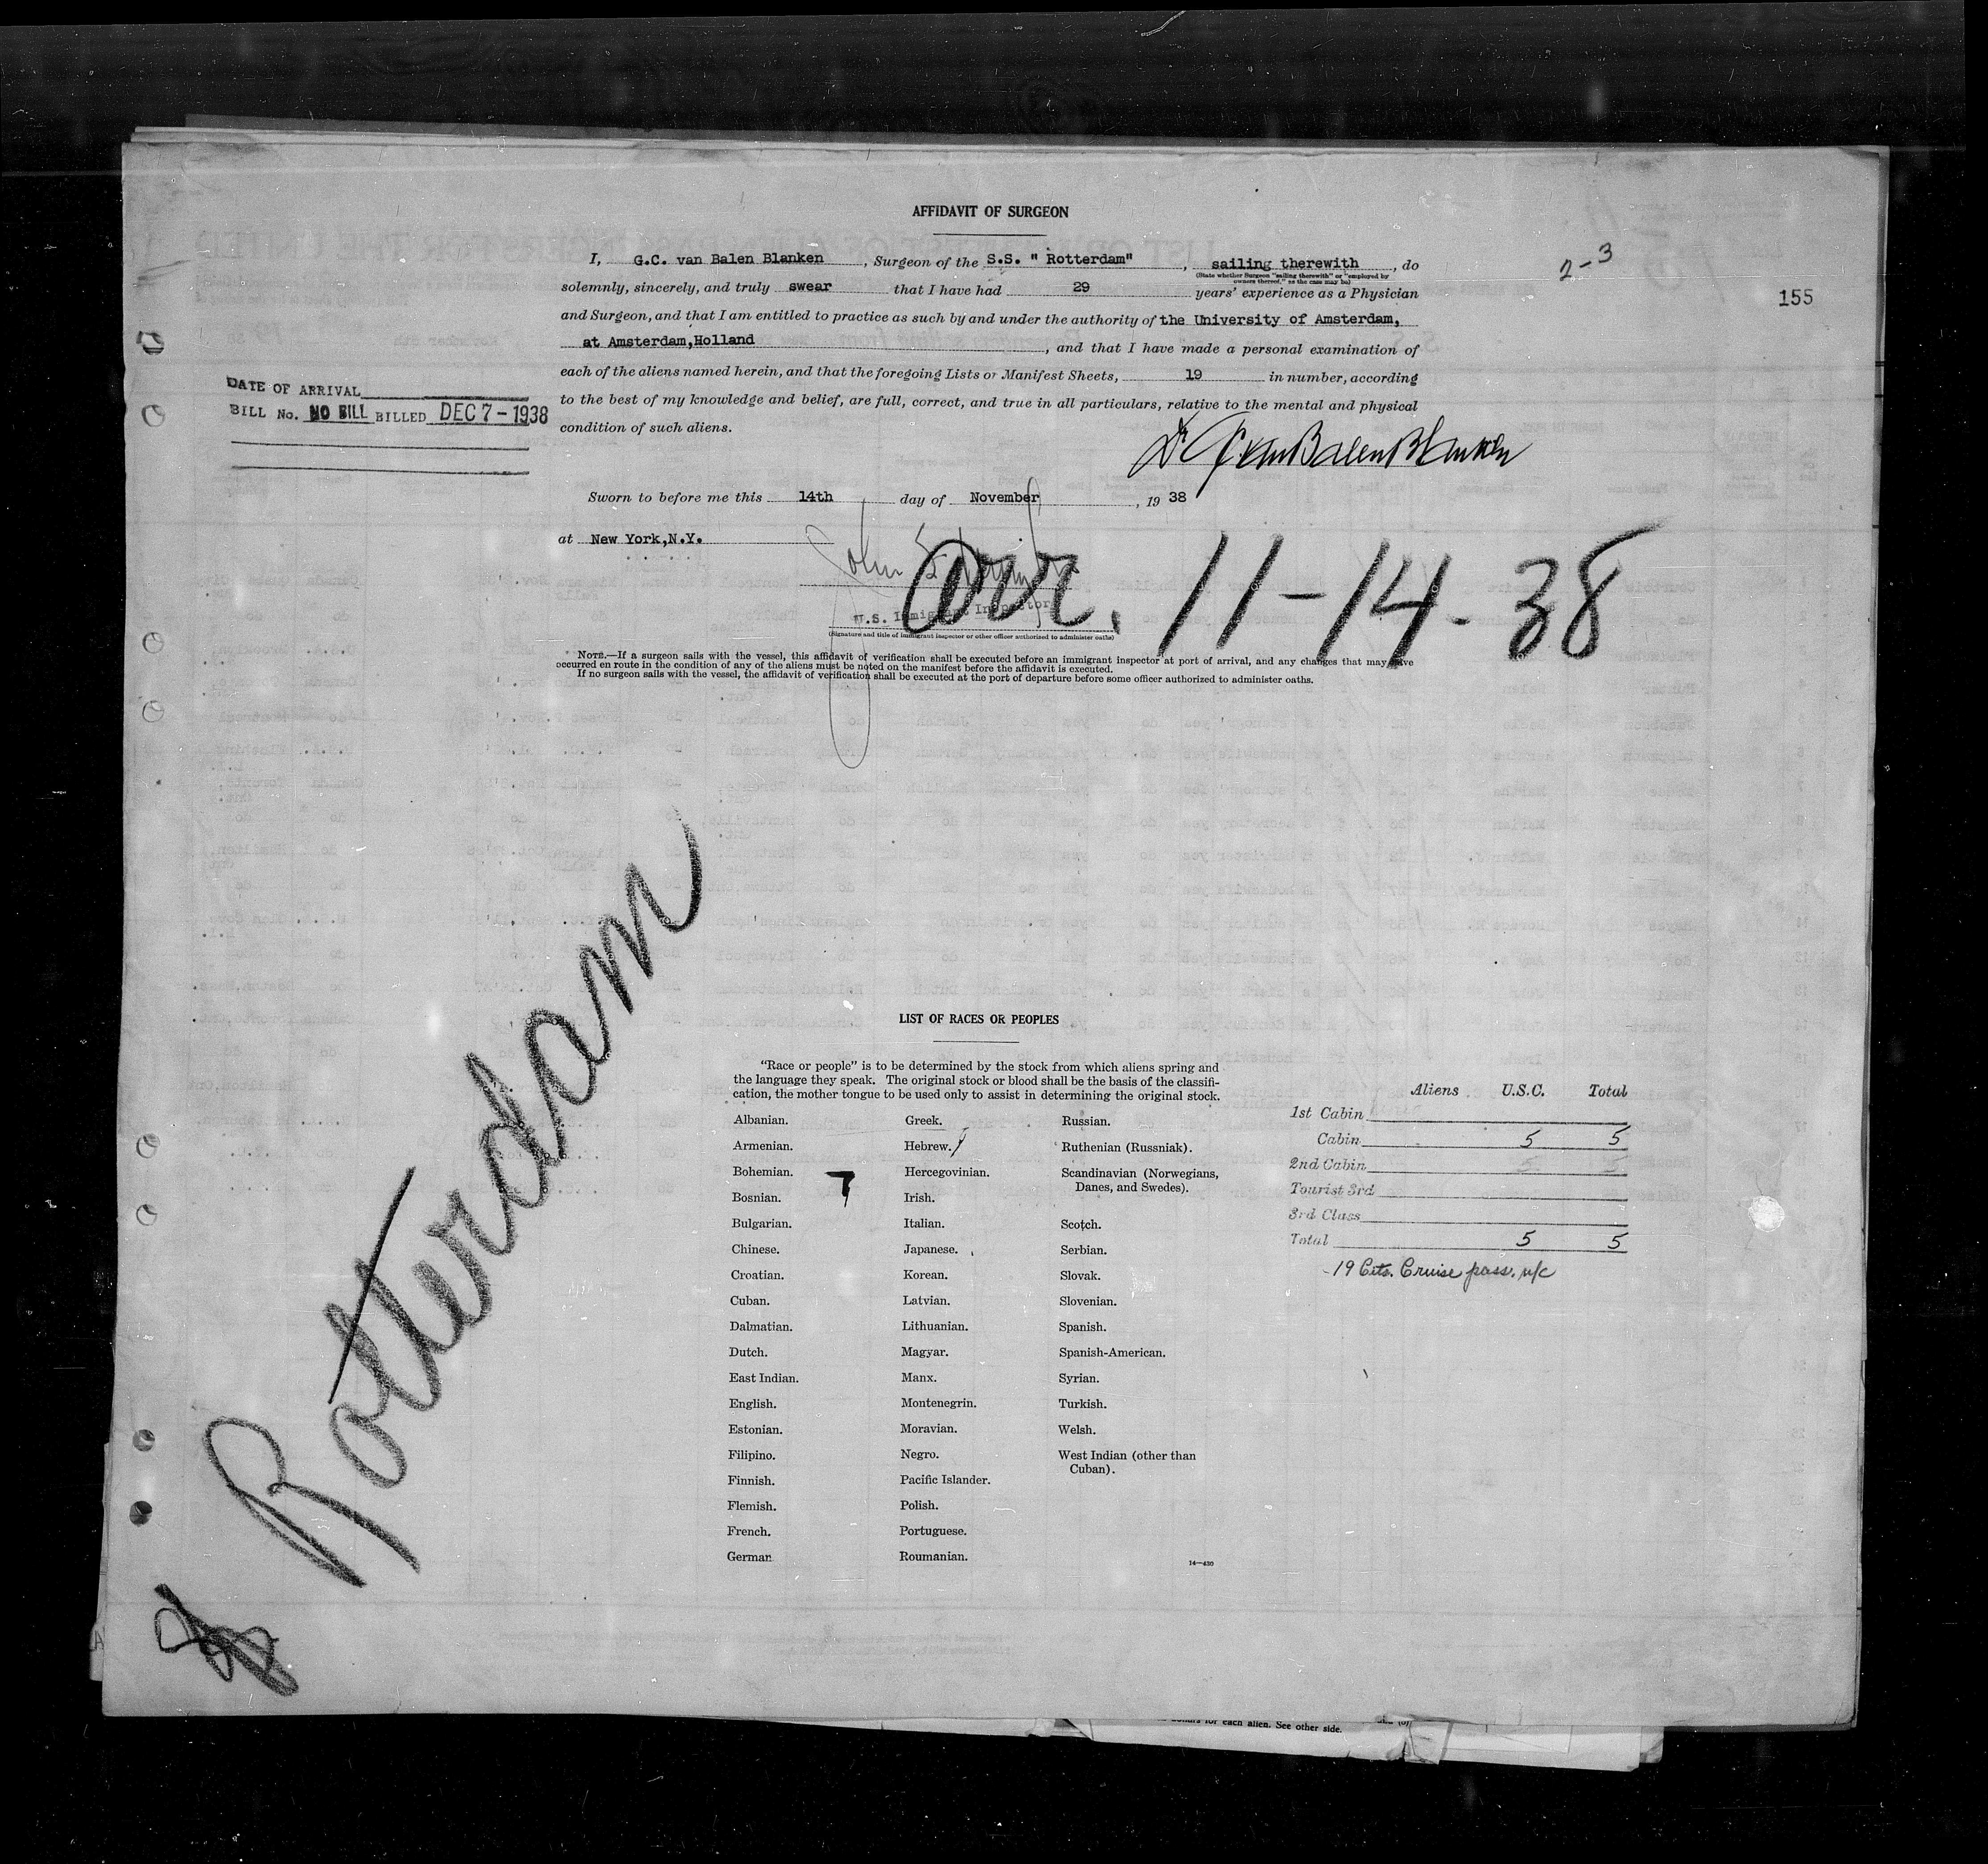 AFFIDAVIT OF SURGEON
I, G.C. van Balen Blanken, Surgeon of the S.S. " Rotterdam", sailing therewith, do
(State whether Surgeon "sailing therewith" or "employed by
owners thereof," as the case may be)
solemnly, sincerely, and truly swear that I have had 29 years' experience as a Physician
and Surgeon, and that I am entitled to practice as such by and under the authority of the University of Amsterdam,
at Amsterdam,Holland, and that I have made a personal examination of
each of the aliens named herein, and that the foregoing Lists or Manifest Sheets, 19 in number, according
to the best of my knowledge and belief, are full, correct, and true in all particulars, relative to the mental and physical
condition of such aliens.
2-3
155
DATE OF ARRIVAL
BILL No. NO BILL BILLED DEC 7-1938
Dr G.C. van Balen Blanken
Sworn to before me this 14th day of November, 19 38
at New York,N.Y.
John
arr. 11-14-38
U.S. Immigrant Inspector
(Signature and title of immigrant inspector or other officer authorized to administer oaths)
NOTE.—If a surgeon sails with the vessel, this affidavit of verification shall be executed before an immigrant inspector at port of arrival, and any changes that may have
occurred en route in the condition of any of the aliens must be noted on the manifest before the affidavit is executed.
If no surgeon sails with the vessel, the affidavit of verification shall be executed at the port of departure before some officer authorized to administer oaths.
Rotterdam
LIST OF RACES OR PEOPLES
"Race or people" is to be determined by the stock from which aliens spring and
the language they speak. The original stock or blood shall be the basis of the classifi-
cation, the mother tongue to be used only to assist in determining the original stock.
Albanian.
Armenian.
Bohemian.
Bosnian.
Bulgarian.
Chinese.
Croatian.
Cuban.
Dalmatian.
Dutch.
East Indian.
English.
Estonian.
Filipino.
Finnish.
Flemish.
French.
German
Greek.
Hebrew.
Hercegovinian.
Irish.
Italian.
Japanese.
Korean.
Latvian.
Lithuanian.
Magyar.
Manx.
Montenegrin.
Moravian.
Negro.
Pacific Islander.
Polish.
Portuguese.
Roumanian.
Russian.
Ruthenian (Russniak).
Scandinavian (Norwegians,
Danes, and Swedes).
Scotch.
Serbian.
Slovak.
Slovenian.
Spanish.
Spanish-American.
Syrian.
Turkish.
Welsh.
West Indian (other than
Cuban).
14—430
Aliens U.S.C. Total
1st Cabin
Cabin 5 5
2nd Cabin
Tourist 3rd
3rd Class
Total 5 5
-19 Cits. Cruise pass. n/c
for each alien. See other side.